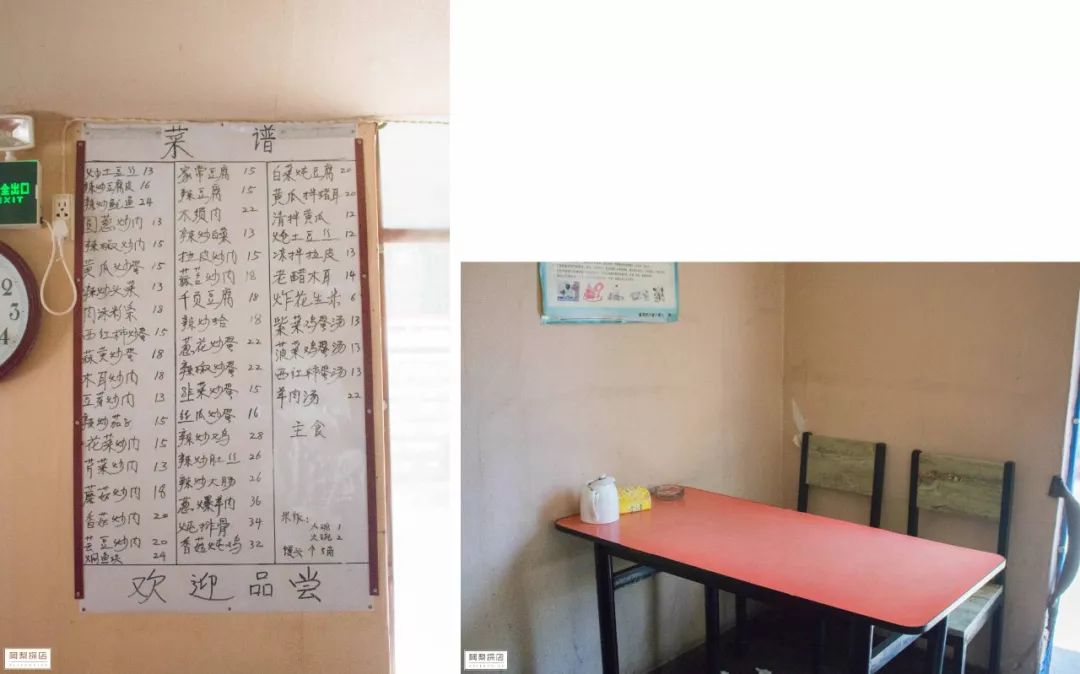 菜谱
炒土豆丝 13
辣炒豆腐皮 16
辣炒鱿鱼 24
圆葱炒肉 13
辣椒炒肉 15
黄瓜炒蛋 15
辣炒头菜 13
肉沫粉条 18
西红柿炒蛋 15
蒜黄炒蛋 18
木耳炒肉 18
豆芽炒肉 13
辣炒茄子 15
花菜炒肉 15
芹菜炒肉 13
蘑菇炒肉 18
香菇炒肉 20
芸豆炒肉 20
焖鱼块 24
家常豆腐 15
辣豆腐 15
木须肉 22
辣炒白菜 13
拉皮炒肉 15
蒜苔炒肉 18
千页豆腐 18
辣炒蛤 18
葱花炒蛋 22
辣椒炒蛋 22
韭菜炒蛋 15
丝瓜炒蛋 16
辣炒鸡 28
辣炒肚丝 26
辣炒大肠 26
葱爆羊肉 36
炖排骨 34
香菇炖鸡 32
白菜炖豆腐 20
黄瓜拌猪耳 20
清拌黄瓜 12
炝土豆丝 12
凉拌拉皮 13
老醋木耳 14
炸花生米 6
紫菜鸡蛋汤 13
菠菜鸡蛋汤 13
西红柿蛋汤 13
羊肉汤 22
主食
米饭:
小碗 1
大碗 2
馒头 个 5角
欢迎品尝
全出口
EXIT
2
3
4
阿梨探店
阿梨探店